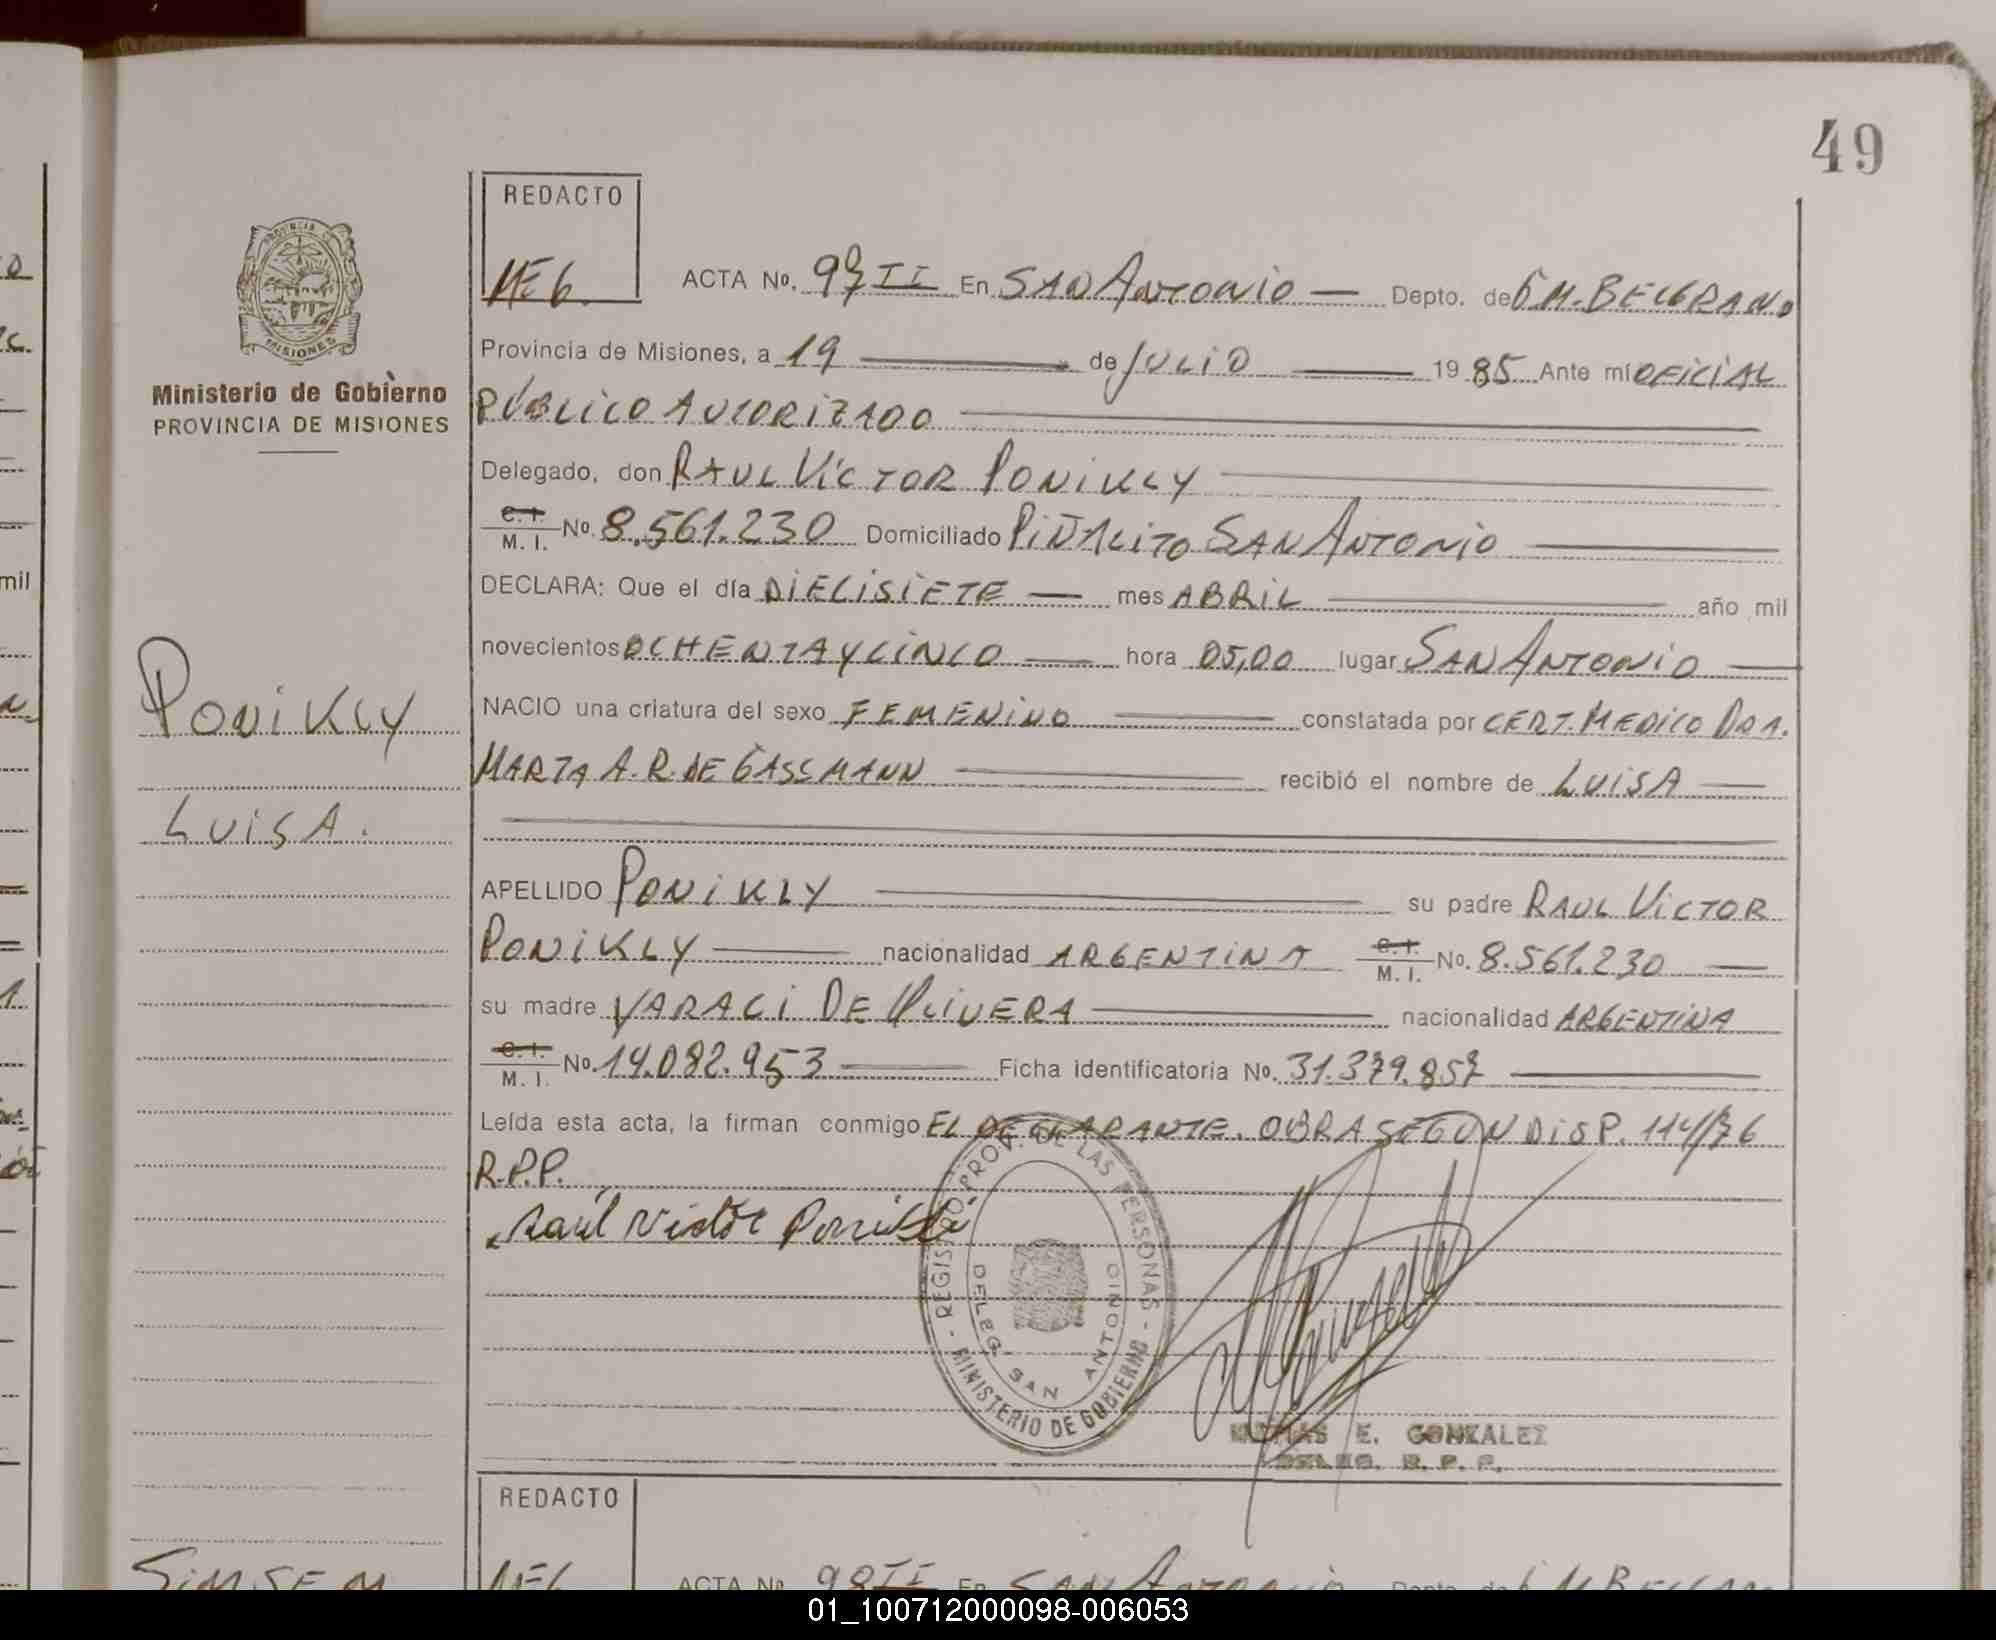 49
REDACTO
MEG.
ACTA No. 97 II En SAN ANTONIO — Depto. de G M. BELGRANO
Provincia de Misiones, a 19 de JULIO 1985 Ante mí OFICIAL
PÚBLICO AUTORIZADO
Delegado, don RAUL VICTOR PONIKLY
C. I. / M. I. No. 8.561.230 Domiciliado PIÑALITO SAN ANTONIO
DECLARA: Que el día DIECISIETE — mes ABRIL año mil
novecientos OCHENTA Y CINCO — hora 05,00 lugar SAN ANTONIO —
NACIO una criatura del sexo FEMENINO constatada por CERT. MEDICO DRA.
MARTA A. R. DE GASSMANN recibió el nombre de LUISA —
APELLIDO PONIKLY su padre RAUL VICTOR
PONIKLY nacionalidad ARGENTINA C. I. / M. I. No. 8.561.230 —
su madre YARACI DE OLIVERA nacionalidad ARGENTINA
C. I. / M. I. No. 14.082.953 Ficha identificatoria No. 31.379.857
Leída esta acta, la firman conmigo EL DECLARANTE. OBRA SEGUN DISP. 114/76
R.P.P.
Raúl Victor Ponikli
REGISTRO PROV. DE LAS PERSONAS - MINISTERIO DE GOBIERNO -
DELEG. SAN ANTONIO
MATIAS E. GONZALEZ
DELEG. R. P. P.
PROVINCIA DE
MISIONES
Ministerio de Gobierno
PROVINCIA DE MISIONES
PONIKLY
LUISA.
REDACTO
MEG
ACTA No. 98 II En SAN ANTONIO Depto. de G M BELGRANO
mil
01_100712000098-006053